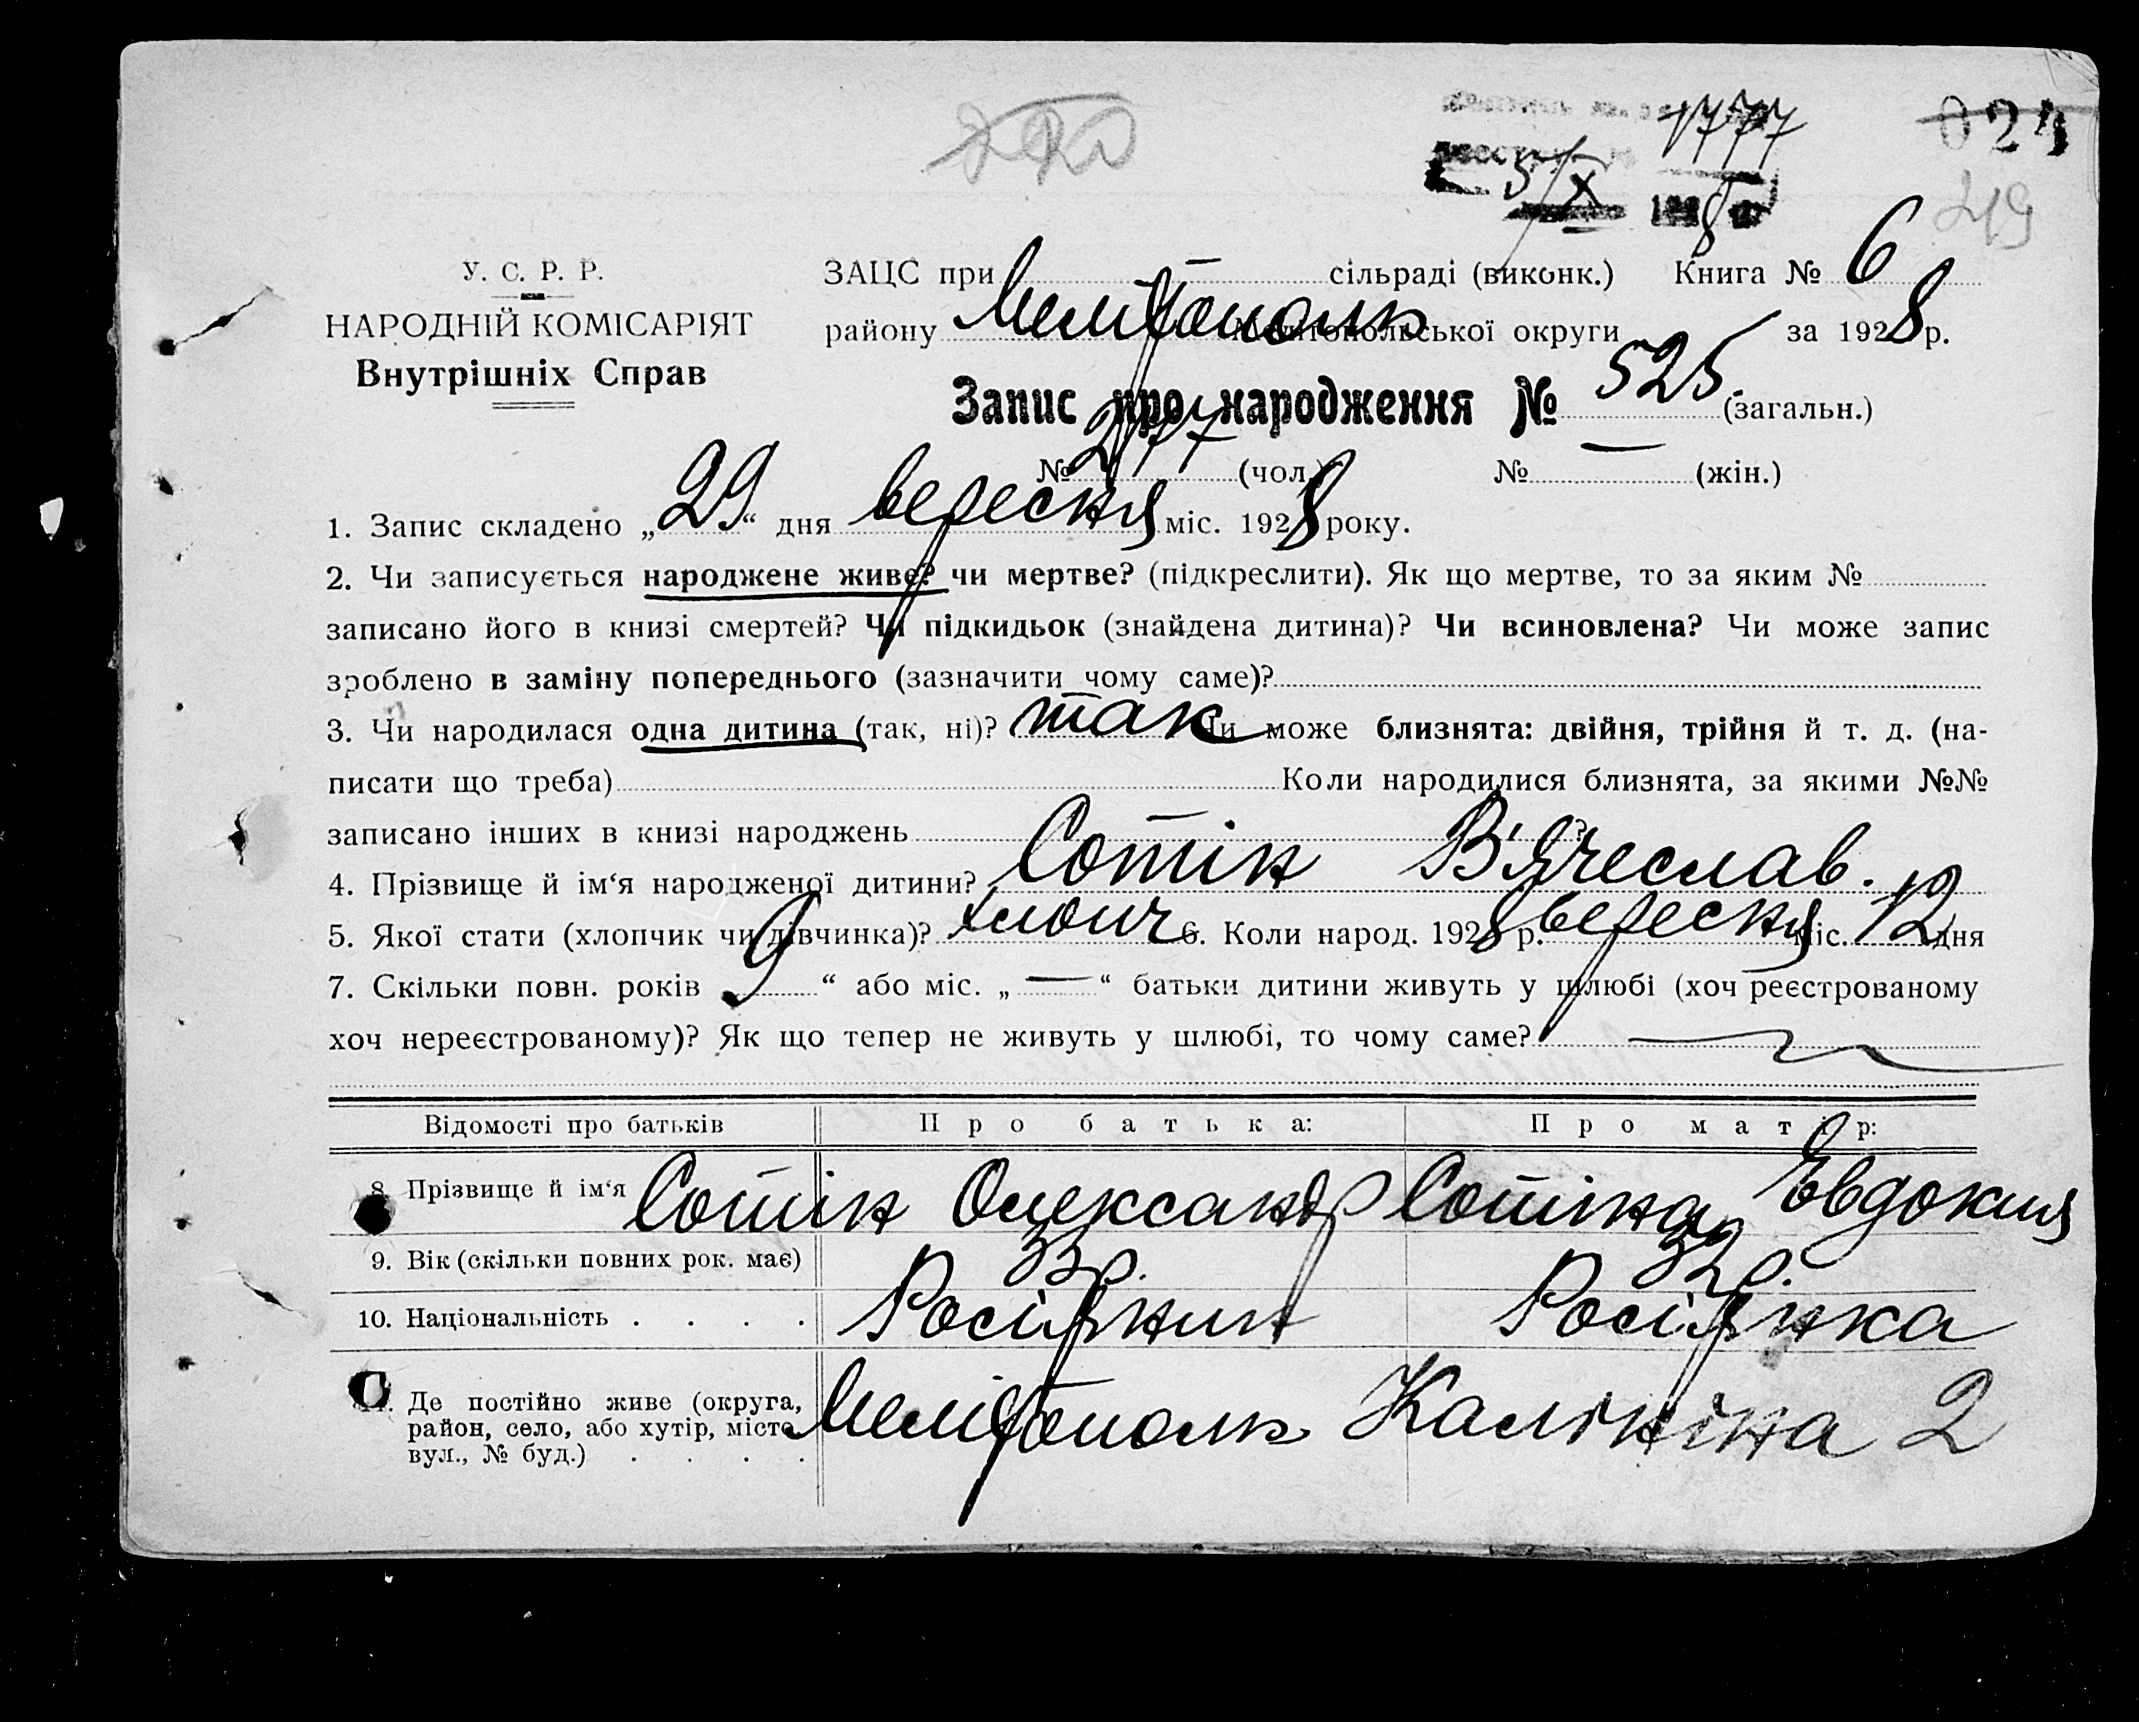 1777
024
5/X 1928 г.
249
У. С. Р. Р.
НАРОДНІЙ КОМІСАРІЯТ
Внутрішніх Справ
ЗАЦС при — сільраді (виконк.) Книга № 6
району Мелітополь Мелітопольської округи за 1928 р.
Запис про народження № 525. (загальн.)
№ 277 (чол.) № — (жін.)
1. Запис складено „29“ дня вересня міс. 1928 року.
2. Чи записується народжене живе? чи мертве? (підкреслити). Як що мертве, то за яким №
записано його в книзі смертей? Чи підкидьок (знайдена дитина)? Чи всиновлена? Чи може запис
зроблено в заміну попереднього (зазначити чому саме)?
3. Чи народилася одна дитина (так, ні)? так Чи може близнята: двійня, трійня й т. д. (на-
писати що треба) Коли народилися близнята, за якими №№
записано інших в книзі народжень ?
4. Прізвище й ім‘я народженої дитини? Сотін В'ячеслав.
5. Якої стати (хлопчик чи дівчинка)? хлопч 6. Коли народ. 1928 р. вересня міс. 12 дня
7. Скільки повн. років „9“ або міс. „—“ батьки дитини живуть у шлюбі (хоч реєстрованому
хоч нереєстрованому)? Як що тепер не живуть у шлюбі, то чому саме? —
Відомості про батьків Про батька: Про матір:
8. Прізвище й ім‘я Сотін Олександр Сотіна Євдокия
9. Вік (скільки повних рок. має) 33 р. 32 р.
10. Національність . . . . Росіянин Росіянка
11. Де постійно живе (округа,
район, село, або хутір, місто Мелітополь Калініна 2
вул., № буд.) . . . .